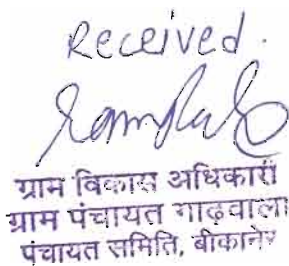 Received.
ग्राम विकास अधिकारी
ग्राम पंचायत गाढ़वाला
पंचायत समिति, बीकानेर